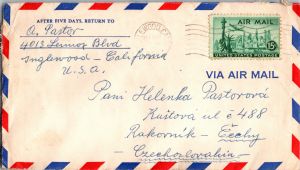 AFTER FIVE DAYS, RETURN TO
A. Pastor
4013 Lennox Blvd
Inglewood - California
U. S. A.
AIR MAIL
15¢
UNITED STATES POSTAGE
VIA AIR MAIL
Pani Helenka Pastorová
Kuštova ul č 488
Rakovník - Čechy
Czechoslovakia